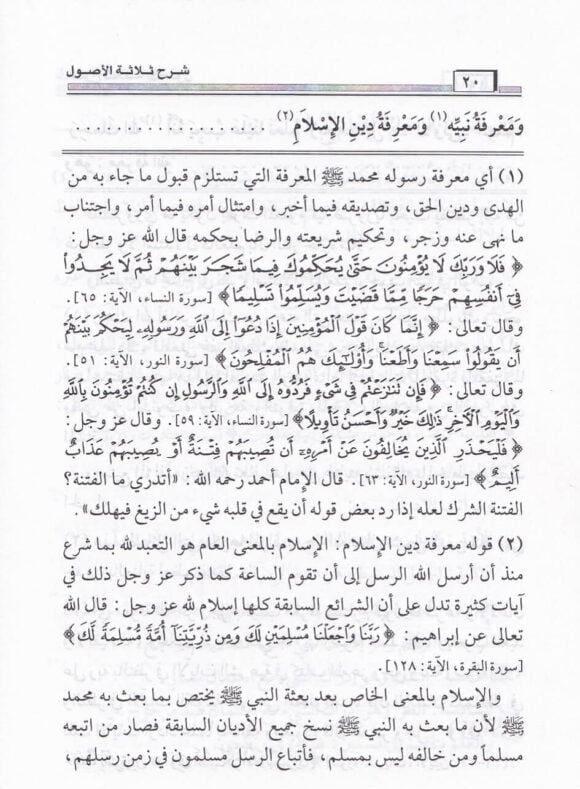 شرح ثلاثة الأصول
٢٠
وَمَعْرِفَةُ نَبِيِّهِ(١) وَمَعْرِفَةُ دِيْنِ الإِسْلاَمِ(٢) . . . . . . . . . . . . . .
(١) أي معرفة رسوله محمد ﷺ المعرفة التي تستلزم قبول ما جاء به من
الهدى ودين الحق، وتصديقه فيما أخبر، وامتثال أمره فيما أمر، واجتناب
ما نهى عنه وزجر، وتحكيم شريعته والرضا بحكمه قال الله عز وجل:
﴿ فَلَا وَرَبِّكَ لَا يُؤْمِنُونَ حَتَّىٰ يُحَكِّمُوكَ فِيمَا شَجَرَ بَيْنَهُمْ ثُمَّ لَا يَجِدُوا
فِي أَنفُسِهِمْ حَرَجًا مِّمَّا قَضَيْتَ وَيُسَلِّمُوا تَسْلِيمًا ﴾ [سورة النساء، الآية: ٦٥].
وقال تعالى: ﴿ إِنَّمَا كَانَ قَوْلَ الْمُؤْمِنِينَ إِذَا دُعُوا إِلَى اللَّهِ وَرَسُولِهِ لِيَحْكُمَ بَيْنَهُمْ
أَن يَقُولُوا سَمِعْنَا وَأَطَعْنَا وَأُولَٰئِكَ هُمُ الْمُفْلِحُونَ ﴾ [سورة النور، الآية: ٥١].
وقال تعالى: ﴿ فَإِن تَنَازَعْتُمْ فِي شَيْءٍ فَرُدُّوهُ إِلَى اللَّهِ وَالرَّسُولِ إِن كُنتُمْ تُؤْمِنُونَ بِاللَّهِ
وَالْيَوْمِ الْآخِرِ ذَٰلِكَ خَيْرٌ وَأَحْسَنُ تَأْوِيلًا ﴾ [سورة النساء، الآية: ٥٩]. وقال عز وجل:
﴿ فَلْيَحْذَرِ الَّذِينَ يُخَالِفُونَ عَنْ أَمْرِهِ أَن تُصِيبَهُمْ فِتْنَةٌ أَوْ يُصِيبَهُمْ عَذَابٌ
أَلِيمٌ ﴾ [سورة النور، الآية: ٦٣]. قال الإمام أحمد رحمه الله: «أتدري ما الفتنة؟
الفتنة الشرك لعله إذا رد بعض قوله أن يقع في قلبه شيء من الزيغ فيهلك».
(٢) قوله معرفة دين الإسلام: الإسلام بالمعنى العام هو التعبد لله بما شرع
منذ أن أرسل الله الرسل إلى أن تقوم الساعة كما ذكر عز وجل ذلك في
آيات كثيرة تدل على أن الشرائع السابقة كلها إسلام لله عز وجل: قال الله
تعالى عن إبراهيم: ﴿ رَبَّنَا وَاجْعَلْنَا مُسْلِمَيْنِ لَكَ وَمِن ذُرِّيَّتِنَا أُمَّةً مُّسْلِمَةً لَّكَ ﴾
[سورة البقرة، الآية: ١٢٨].
والإسلام بالمعنى الخاص بعد بعثة النبي ﷺ يختص بما بعث به محمد
ﷺ لأن ما بعث به النبي ﷺ نسخ جميع الأديان السابقة فصار من اتبعه
مسلماً ومن خالفه ليس بمسلم، فأتباع الرسل مسلمون في زمن رسلهم،